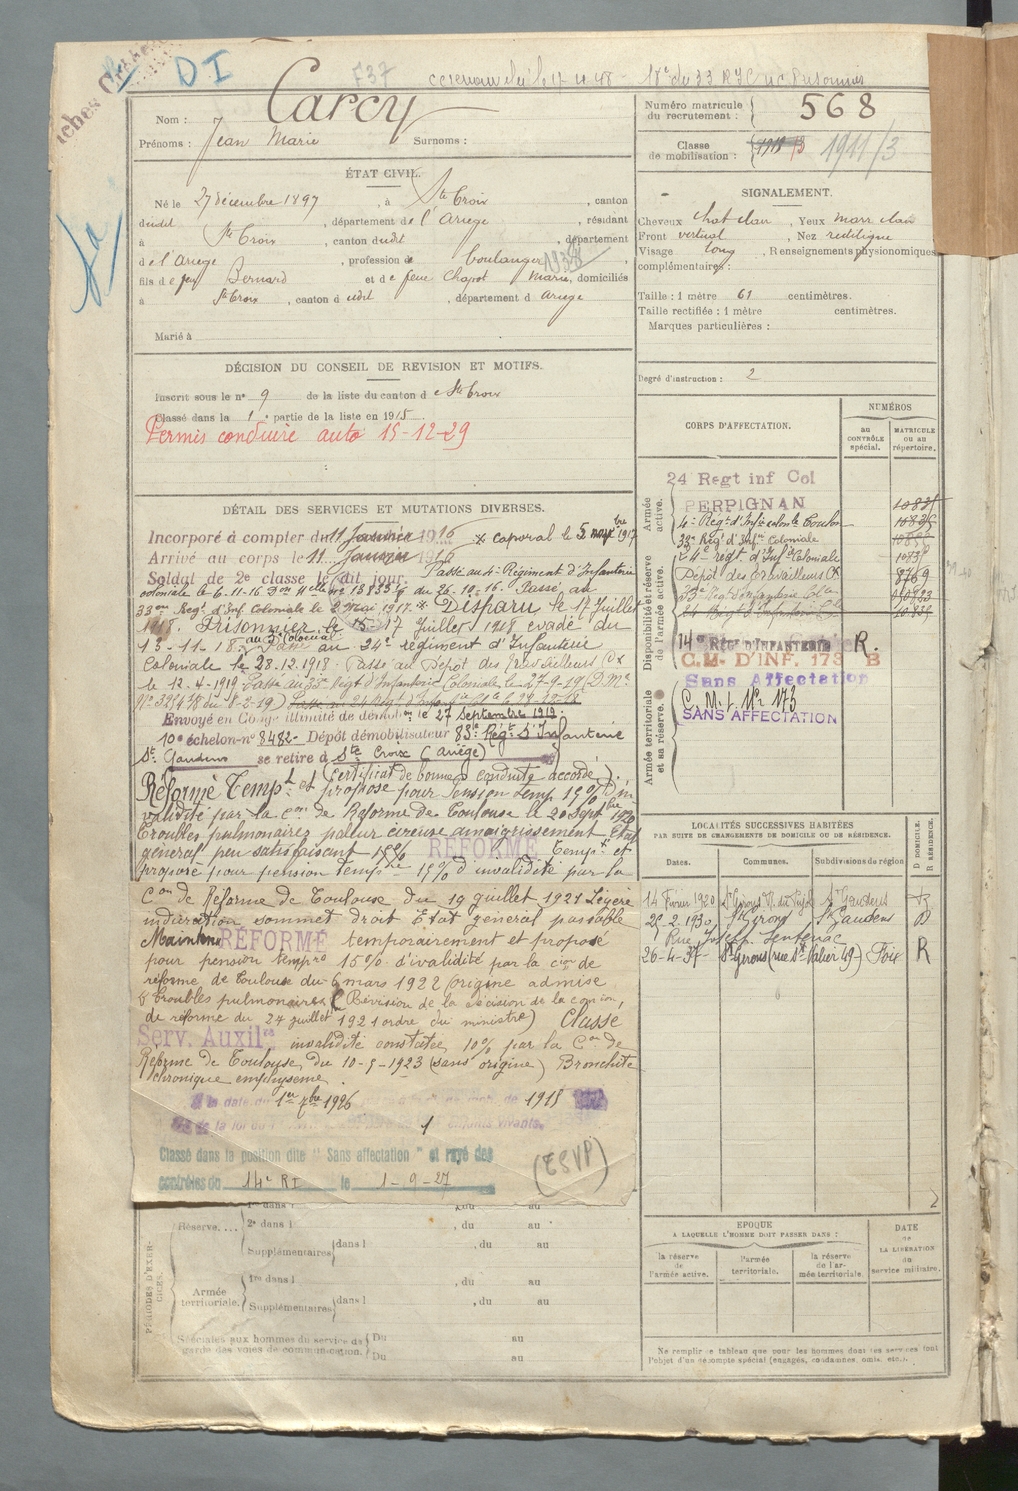 DI
F37
Nom : Carcy
Prénoms : Jean Marie Surnoms :
Numéro matricule du recrutement : 568
Classe de mobilisation : 1911/3
ÉTAT CIVIL.
Né le 27 décembre 1897, à Ste Croix, canton
dudit, département de l'Ariège, résidant
à Ste Croix, canton dudit, département
de l'Ariège, profession de boulanger
fils de feu Bernard et de feue Chapot Marie, domiciliés
à Ste Croix, canton dudit, département d Ariège
Marié à
SIGNALEMENT.
Cheveux chat clair, Yeux marr clair
Front vertical, Nez rectiligne
Visage long, Renseignements physionomiques
complémentaires :
Taille : 1 mètre 61 centimètres.
Taille rectifiée : 1 mètre centimètres.
Marques particulières :
Degré d'instruction : 2
DÉCISION DU CONSEIL DE REVISION ET MOTIFS.
Inscrit sous le n° 9 de la liste du canton de Ste Croix
Classé dans la 1e partie de la liste en 1915
Permis conduire auto 15-12-29
DÉTAIL DES SERVICES ET MUTATIONS DIVERSES.
Incorporé à compter du 11 Janvier 1916 * caporal le 5 1917
Arrivé au corps le 11 Janvier 1916
Soldat de 2e classe le dit jour. Passé au 4e Régiment d'Infanterie
coloniale le 6-11-16 du 26-10-16. Passé au
33e Regt d'Inf Coloniale le 2 Mai 1917.* Disparu le 17 Juillet
1918. Prisonnier le 17 Juillet 1918 évadé du
13-11-18. Passé au 24e régiment d'Infanterie
Coloniale le 28.12.1918. Passé au Dépôt des travailleurs Cx
le 12-4-1919. Passé au 33e Regt d'Infanterie Coloniale le 27-9-19
Envoyé en Congé illimité de démobon le 27 Septembre 1919.
10e échelon n° 8482 - Dépôt démobilisateur 83e Régt d'Infanterie
St Gaudens se retire à Ste Croix (Ariège)
(Certificat de bonne conduite accordé).
Réformé Tempt et proposé pour Pension temp 15% d'in
validité par la con de Réforme de Toulouse le 20 Sept 1920
Troubles pulmonaires paleur cireuse amaigrissement Etat
général peu satisfaisant RÉFORMÉ Tempt et
proposé pour pension tempre 15% d'invalidité par la
Con de Réforme de Toulouse du 19 juillet 1921 Légère
induration sommet droit Etat général passable
Maintenu RÉFORMÉ temporairement et proposé
pour pension tempro 15% d'invalidité par la con de
réforme de Toulouse du 6 mars 1922 (origine admise
troubles pulmonaires (Révision de la décision de la comion,
de réforme du 24 juillet 1921 ordre du ministre) Classé
Serv. Auxilre invalidité constatée 10% par la Con de
Réforme de Toulouse du 10-5-1923 (sans origine) Bronchite
chronique emphysème.
à la date du 1er 7bre 1926 de 1915
de la loi du enfants vivants.
1
Classé dans la position dite "Sans affectation" et rayé des
contrôles du 14e RI le 1-9-27
(TSVP)
CORPS D'AFFECTATION.
NUMÉROS
au CONTRÔLE spécial.
MATRICULE ou au répertoire.
Armée active.
24 Regt inf Col
PERPIGNAN
4e Régt d'Infie colonle Toulon
33e Reg d'Infie Coloniale
Disponibilité et réserve de l'armée active.
24e regt d'Infie Coloniale
Dépôt des travailleurs Cx 8769
33e Regt d'Infanterie Colale
24 Regt d'Infanterie Cole
14e REGt D'INFANTERIE R.
C.M. D'INF. 173 B
Sans Affectation
Armée territoriale et sa réserve.
C.M.I. N° 173
SANS AFFECTATION
LOCALITÉS SUCCESSIVES HABITÉES
PAR SUITE DE CHANGEMENTS DE DOMICILE OU DE RÉSIDENCE.
Dates. Communes. Subdivisions de région
D DOMICILE. R RÉSIDENCE.
14 Février 1920 St Girons St Gaudens
25-2-1930 St Girons St Gaudens D
Rue Joseph Sentenac
26-4-37 St Girons (rue St Valier 49) Foix R
PÉRIODES D'EXERCICES.
Réserve....
1re dans l , du au
2e dans l , du au
Supplémentaires dans l , du au
Armée territoriale.
1re dans l , du au
Supplémentaires dans l , du au
Spéciales aux hommes du service de garde des voies de communication.
Du au
Du au
EPOQUE
A LAQUELLE L'HOMME DOIT PASSER DANS :
la réserve de l'armée active.
l'armée territoriale.
la réserve de l'armée territoriale.
DATE de LA LIBÉRATION du service militaire.
Ne remplir ce tableau que pour les hommes dont les services font
l'objet d'un décompte spécial (engagés, condamnés, omis, etc.).